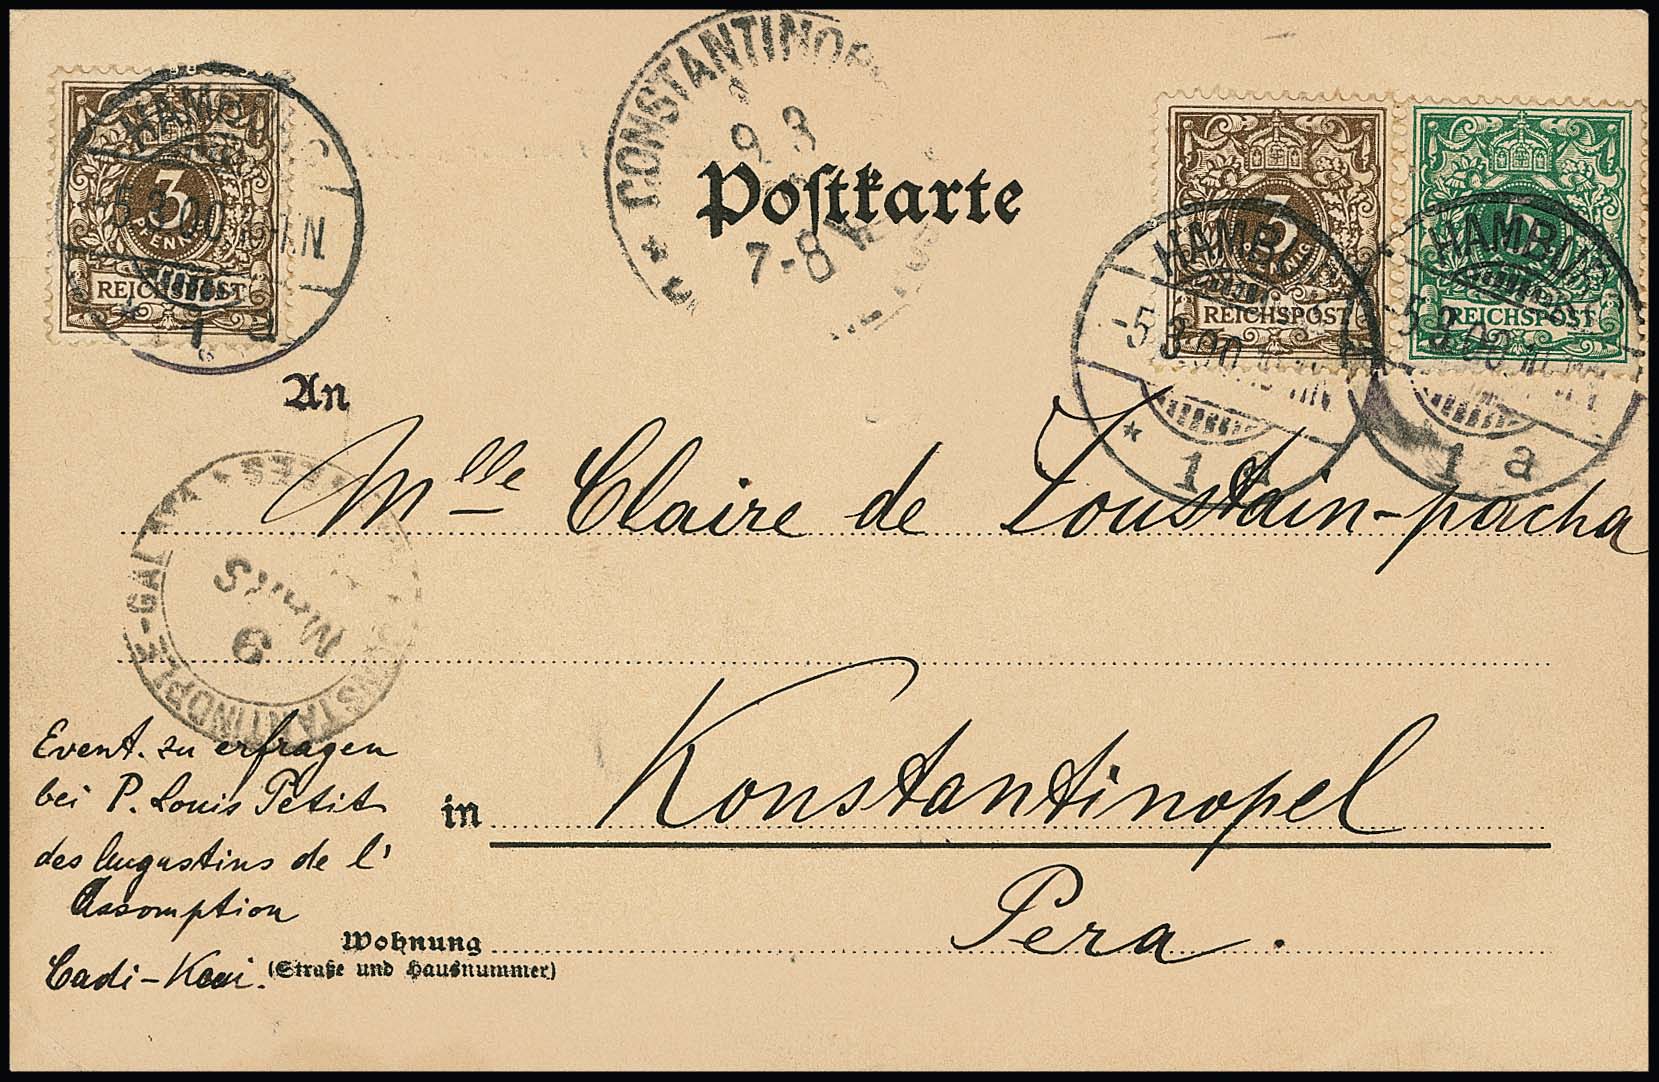 CONSTANTINOP
9 3
7-8
Postkarte
HAMBURG
3
PFENNIG
-5.3.00
REICHSPOST
1 a
3
PFENNIG
REICHSPOST
HAMBURG
-5.3.00
* 1 a
5
REICHSPOST
HAMBURG
-5.3.00
1 a
An
Mlle Claire de Toustain-pacha
CONSTANTINOPLE-GALATA
9
MARS
Event. zu erfragen
bei P. Louis Petit
des Augustins de l'
Assomption
Cadi-Keui.
in Konstantinopel
Wohnung Pera.
(Straße und Hausnummer)